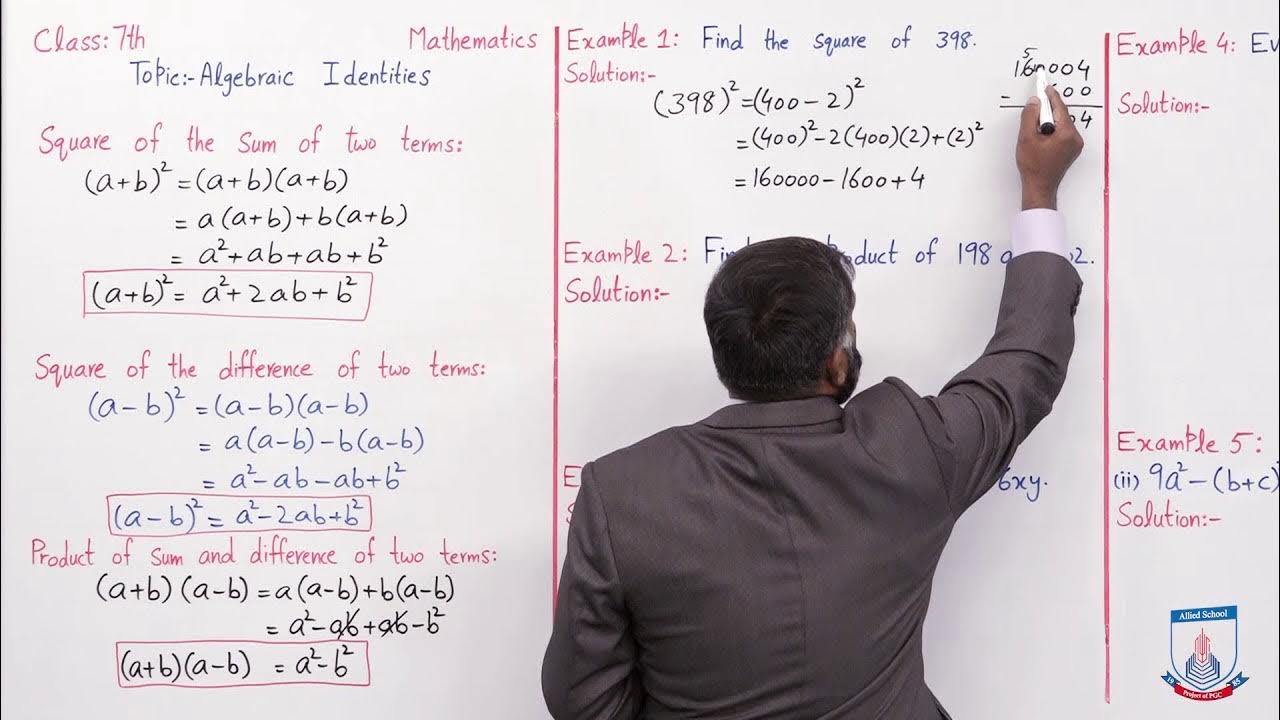 Class: 7th Mathematics
Topic:- Algebraic Identities
Square of the sum of two terms:
(a+b)² = (a+b)(a+b)
= a(a+b)+b(a+b)
= a²+ab+ab+b²
(a+b)² = a²+2ab+b²
Square of the difference of two terms:
(a-b)² = (a-b)(a-b)
= a(a-b)-b(a-b)
= a²-ab-ab+b²
(a-b)² = a²-2ab+b²
Product of sum and difference of two terms:
(a+b)(a-b) = a(a-b)+b(a-b)
= a²-ab+ab-b²
(a+b)(a-b) = a²-b²
Example 1: Find the square of 398.
Solution:-
(398)² = (400-2)²
= (400)²-2(400)(2)+(2)²
= 160000-1600+4
5
160004
- 600
04
Example 2: of 198
Solution:-
6xy.
Example 4:
Solution:-
Example 5:
(ii) 9a²-(b+c)
Solution:-
Allied School
Project of PGC
19 85